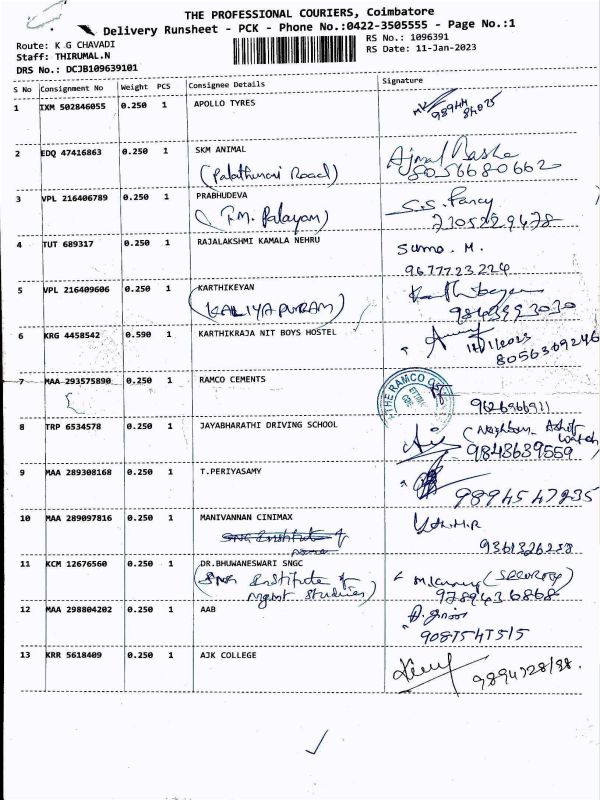 THE PROFESSIONAL COURIERS, Coimbatore
Delivery Runsheet - PCK - Phone No.:0422-3505555 - Page No.:1
Route: K G CHAVADI
RS No.: 1096391
Staff: THIRUMAL.N
RS Date: 11-Jan-2023
DRS No.: DCJB109639101
S No Consignment No Weight PCS Consignee Details Signature
1 IXM 502846055 0.250 1 APOLLO TYRES
2 EDQ 47416863 0.250 1 SKM ANIMAL
(Palathurai Road) 8056680662
3 VPL 216406789 0.250 1 PRABHUDEVA S.S. Fancy
(T.M. Palayam) 7305229478
4 TUT 689317 0.250 1 RAJALAKSHMI KAMALA NEHRU Suma. M.
9677723224
5 VPL 216409606 0.250 1 KARTHIKEYAN
(KALIYAPURAM) 9843993030
6 KRG 4458542 0.590 1 KARTHIKRAJA NIT BOYS HOSTEL
8056309246
7 MAA 293575890 0.250 1 RAMCO CEMENTS THE RAMCO
9626966911
8 TRP 6534578 0.250 1 JAYABHARATHI DRIVING SCHOOL
9848639559
9 MAA 289308168 0.250 1 T.PERIYASAMY
9894547235
10 MAA 289097816 0.250 1 MANIVANNAN CINIMAX
SNG Institute of
9361326238
11 KCM 12676560 0.250 1 DR.BHUWANESWARI SNGC
(SNG Institute of (SECURITY)
Mgmt Studies) 9789436868
12 MAA 298804202 0.250 1 AAB
9087547515
13 KRR 5618409 0.250 1 AJK COLLEGE